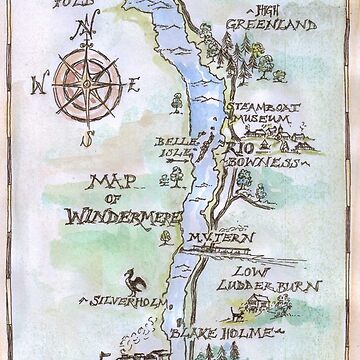 FOLD
N
W
E
S
HIGH
GREENLAND
STEAMBOAT
MUSEUM
BELLE
ISLE
RIO
BOWNESS
MAP
OF
WINDERMERE
M.V. TERN
LOW
LUDDERBURN
SILVERHOLM
BLAKE HOLME